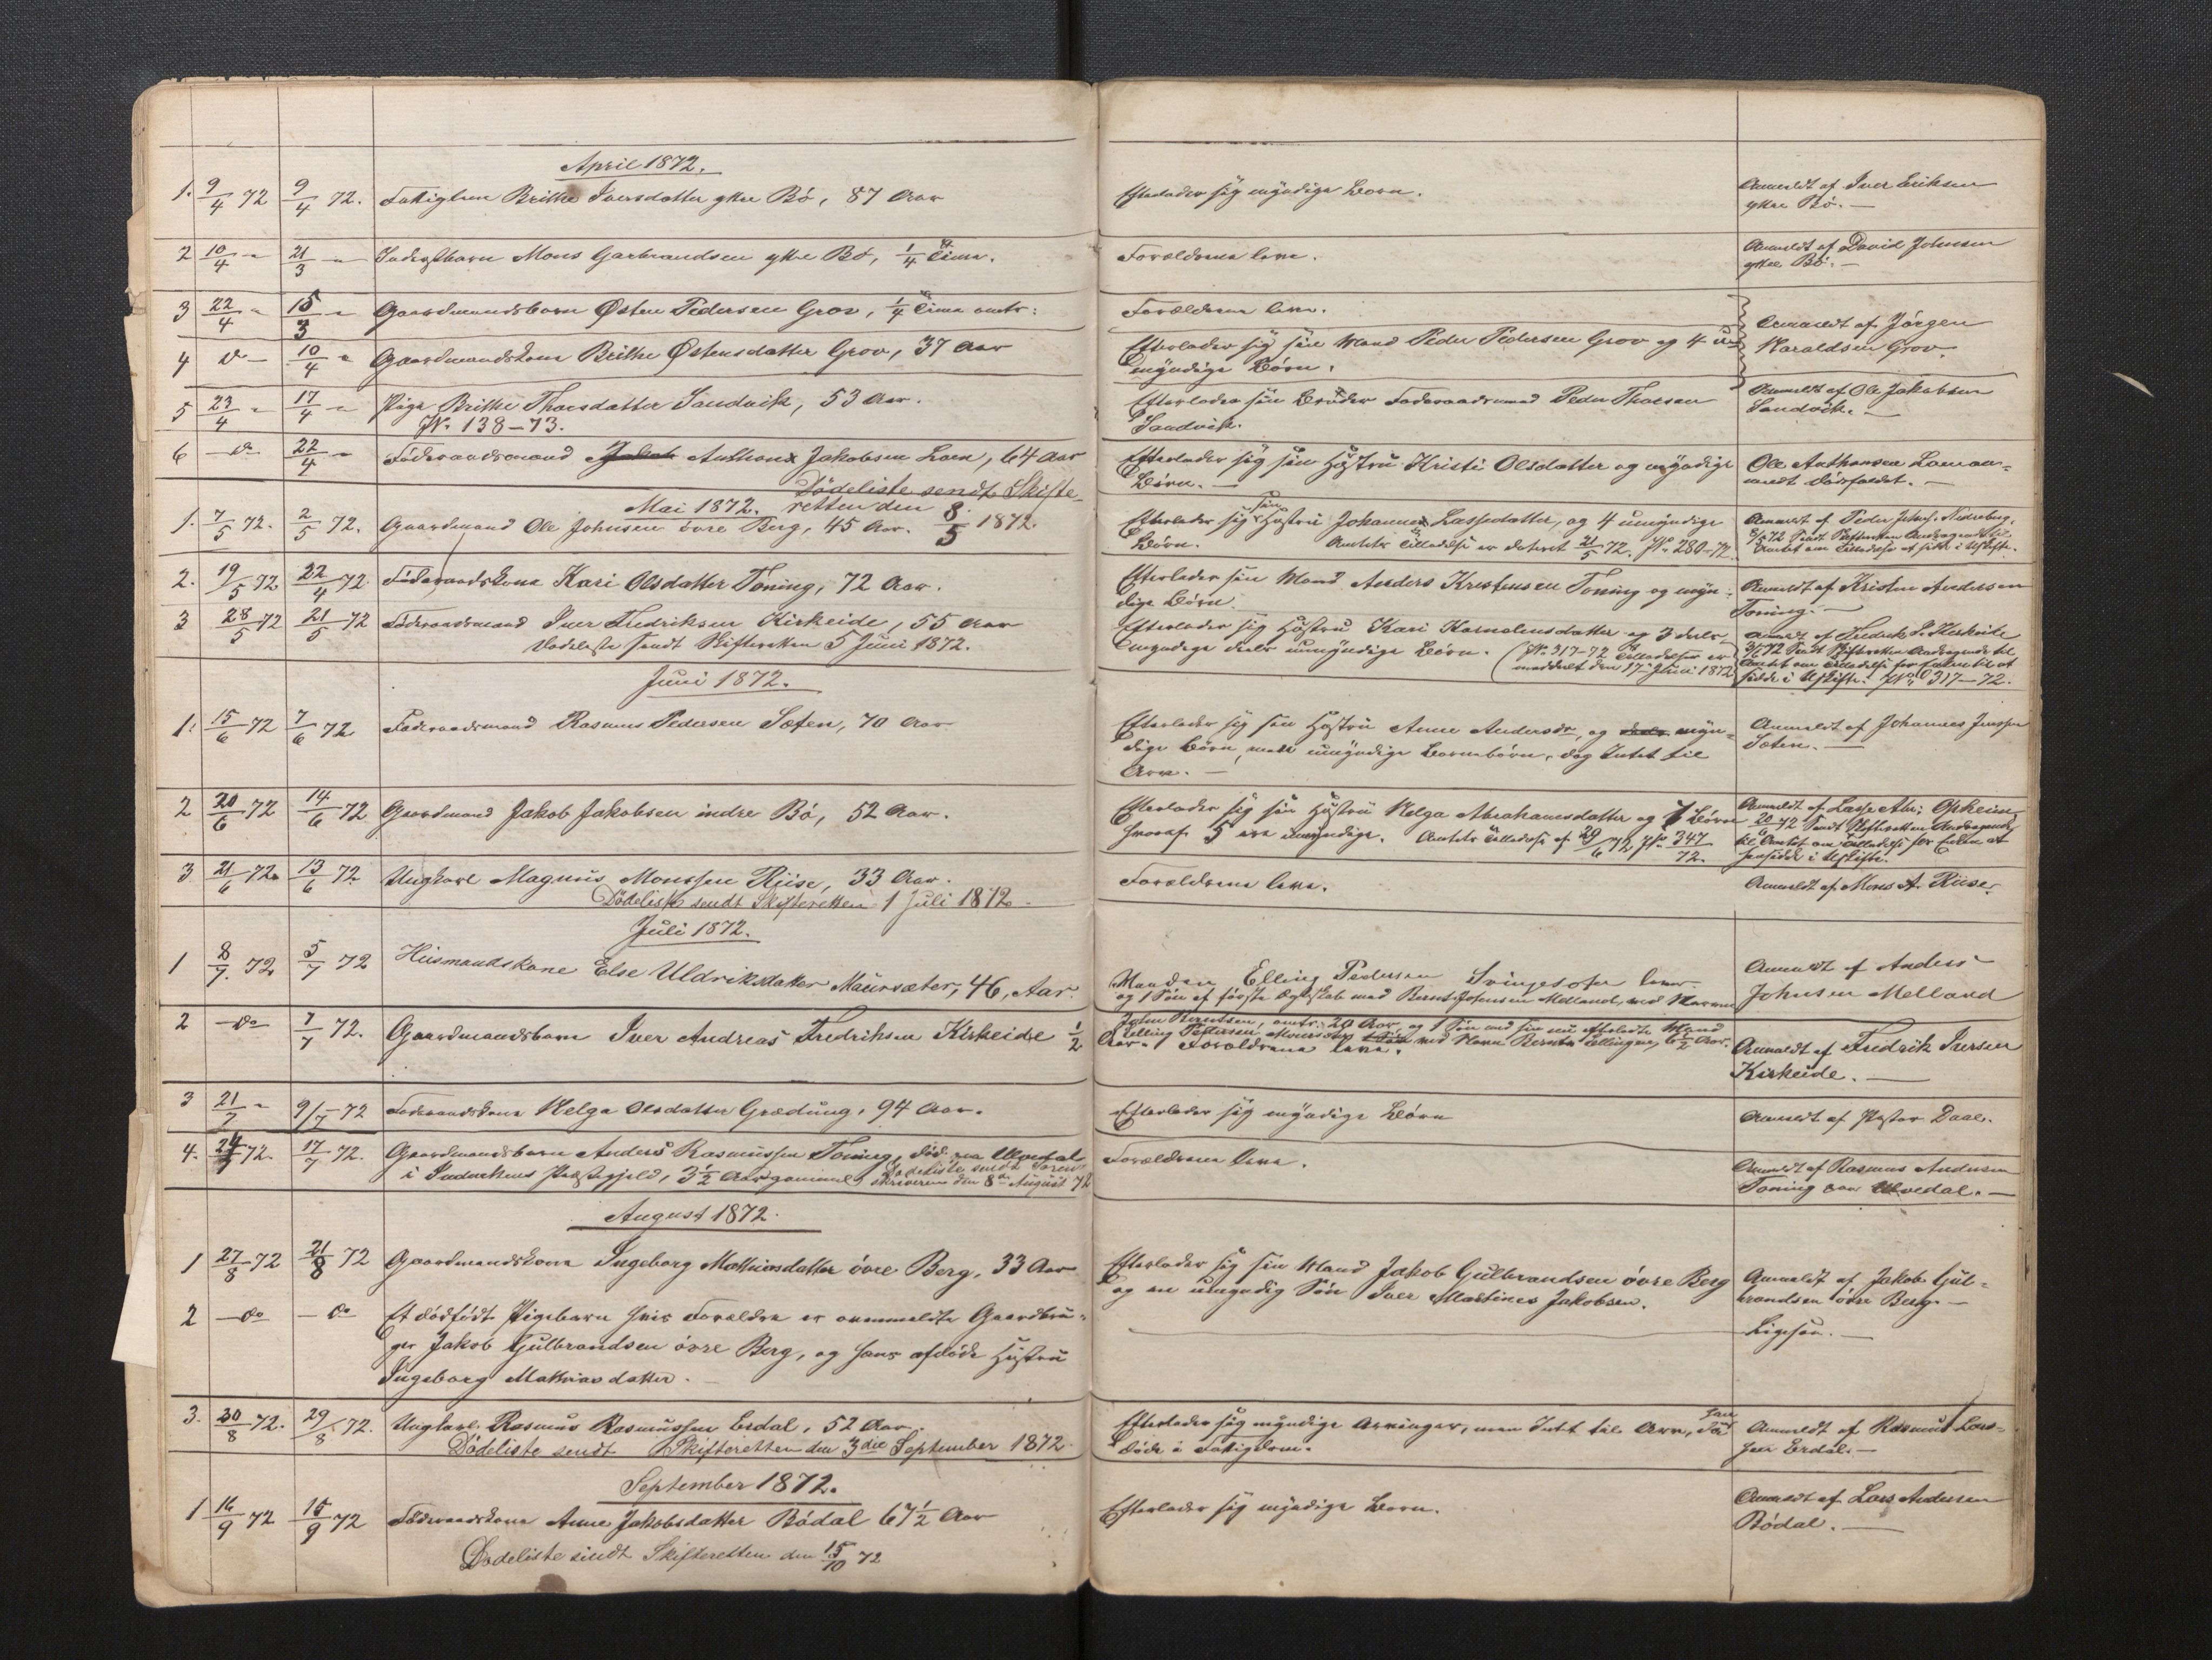 April 1872.
1. 9/4 72 9/4 72. Fattiglem Brithe Iversdatter ytre Bö, 87 Aar
Efterlader sig myndige Børn.
Anmeldt af Iver Eriksen
ytre Bö. —
2 10/4 - 21/3 - Inderstbarn Mons Garbrandsen ytre Bö, 1/4 Time.
Forældrene leve.
Anmeldt af David Johnsen
ytre Bö. —
3 22/4 - 15/3 - Gaardmandsbarn Østen Pedersen Grov, 1/4 Time omtr:
Forældrene leve.
Anmeldt af Jörgen
Haraldsen Grov.
4 do - 10/4 - Gaardmandskone Brithe Østensdatter Grov, 37 Aar
Efterlader sig sin Mand Peder Pedersen Grov og 4 u-
myndige Børn.
5 23/4 - 17/4 - Pige Brithe Thorsdatter Sandvik, 53 Aar.
No. 138-73.
Efterlader sin Broder Föderaadsmand Peder Thorsen
Sandvik.
Anmeldt af Ole Jakobsen
Sandvik. —
6 - do 22/4 - Föderaadsmand Jakob Anthon Jakobsen Loen, 64 Aar
Efterlader sig sin Hustru Kristi Olsdatter og myndige
Børn. —
Ole Anthonsen Loen an-
meldt Dødsfaldet. —
Dödeliste sendt Skifte-
Mai 1872. retten den 8/5 1872.
1. 7/5 72. 2/5 72. Gaardmand Ole Johnsen övre Berg, 45 Aar.
Efterlader sig sin Hustru Johanne Lassedatter, og 4 umyndige
Børn. Amtets Tilladelse er dateret 21/5 72. No 280-72.
Anmeldt af Peder Johns. Nedreberg.
8/5 72 Sendt Skifteretten Andragende til
Amtet om Tilladelse at sidde i Uskifte.
2. 19/5 72 22/4 72 Föderaadskone Kari Olsdatter Toning, 72 Aar.
Efterlader sin Mand Anders Kristensen Toning og myn-
dige Børn.
Anmeldt af Kristen Andersen
Toning. —
3 28/5 72 21/5 72 Föderaadsmand Iver Fredriksen Kirkeide, 55 Aar
Dødeliste sendt Skifteretten 5 Juni 1872.
Efterlader sig Hustru Kari Kornelensdatter og 3 deels
myndige deels umyndige Børn. (No. 317-72 Tilladelsen er
meddelt den 17de Juni 1872
Anmeldt af Fredrik I. Kirkeide
3/6 72 Sendt Skifteretten Andragende til
Amtet om Tilladelse for Enken til at
sidde i Uskifte. No. 317-72.
Juni 1872.
1. 15/6 72 7/6 72 Föderaadsmand Rasmus Pedersen Sæten, 70 Aar
Efterlader sig sin Hustru Anne Andersdr, og deels myn-
dige Børn, samt umyndige Børnebørn, dog Intet til
Arv. —
Anmeldt af Johannes Jenssen
Sæten. —
2 20/6 72 14/6 72 Gaardmand Jakob Jakobsen indre Bö, 52 Aar.
Efterlader sig sin Hustru Helga Abrahamsdatter og 7 Børn
hvoraf 5 ere umyndige. Amtets Tilladelse af 29/6 72 No 347/72.
Anmeldt af Lasse Abr: Opheim
20/6 72 Sendt Skifteretten Andragende
til Amtet om Tilladelse for Enken at
hensidde i Uskifte.
3 21/6 72 13/6 72 Ungkarl Magnus Monssen Riise, 33 Aar.
Forældrene leve.
Anmeldt af Mons A. Riise.
Dödeliste sendt Skifteretten 1 Juli 1872.
Juli 1872.
1 8/7 72 5/7 72 Huusmandskone Else Uldriksdatter Maursæter, 46, Aar.
Manden Elling Pedersen Svingesæter lever
og 1 Søn af første Ægteskab med Bernt Johnsen Melland, ved Navn
John Berntsen, omtr. 20 Aar og 1 Søn med sin nu efterladte Mand
Elling Pedersen Maursæter ved Navn Bernt Ellingsen, 6 1/2 Aar.
Anmeldt af Anders
Johnsen Melland
2 - do 7/7 72. Gaardmandsbarn Iver Andreas Fredriksen Kirkeide 1/2
Aar. Forældrene leve.
Anmeldt af Fredrik Iversen
Kirkeide. —
3 21/7 - 9/7-72 Föderaadskone Helga Olsdatter Grædung, 94 Aar.
Efterlader sig myndige Børn
Anmeldt af Pastor Daae.
4. 24/7 72. 17/7 72. Gaardmandsbarn Anders Rasmussen Toning, død paa Utvedal
i Indvikens Præstegjeld, 3 1/2 Aar gammel Dødeliste sendt Soren-
skriveren den 8de August 72
Forældrene leve.
Anmeldt af Rasmus Andersen
Toning paa Utvedal. —
August 1872.
1 27/8 72 21/8 72 Gaardmandskone Ingeborg Mathiasdatter övre Berg, 33 Aar
Efterlader sig sin Mand Jakob Gulbrandsen övre Berg
og en umyndig Søn Iver Martines Jakobsen.
Anmeldt af Jakob Gul-
brandsen övre Berg. —
2 - do - do Et dödfödt Pigebarn hvis Forældre er ovenmeldte Gaardbru-
ger Jakob Gulbrandsen övre Berg, og hans afdöde Hustru
Ingeborg Mathiasdatter. —
Ligesaa. —
3. 30/8 72. 29/8 72. Ungkarl Rasmus Rasmussen Erdal, 52 Aar
Efterlader sig myndige Arvinger, men Intet til Arv, da han
døde i Fattigdom.
Anmeldt af Rasmus Lars-
sen Erdal. —
Dödeliste sendt Skifteretten den 3die September 1872.
September 1872.
1 16/9 72 15/9 72 Föderaadskone Anne Jakobsdatter Bödal 67 1/2 Aar
Efterlader sig myndige Børn.
Anmeldt af Lars Andersen
Bödal. —
Dødeliste sendt Skifteretten den 15/10 72